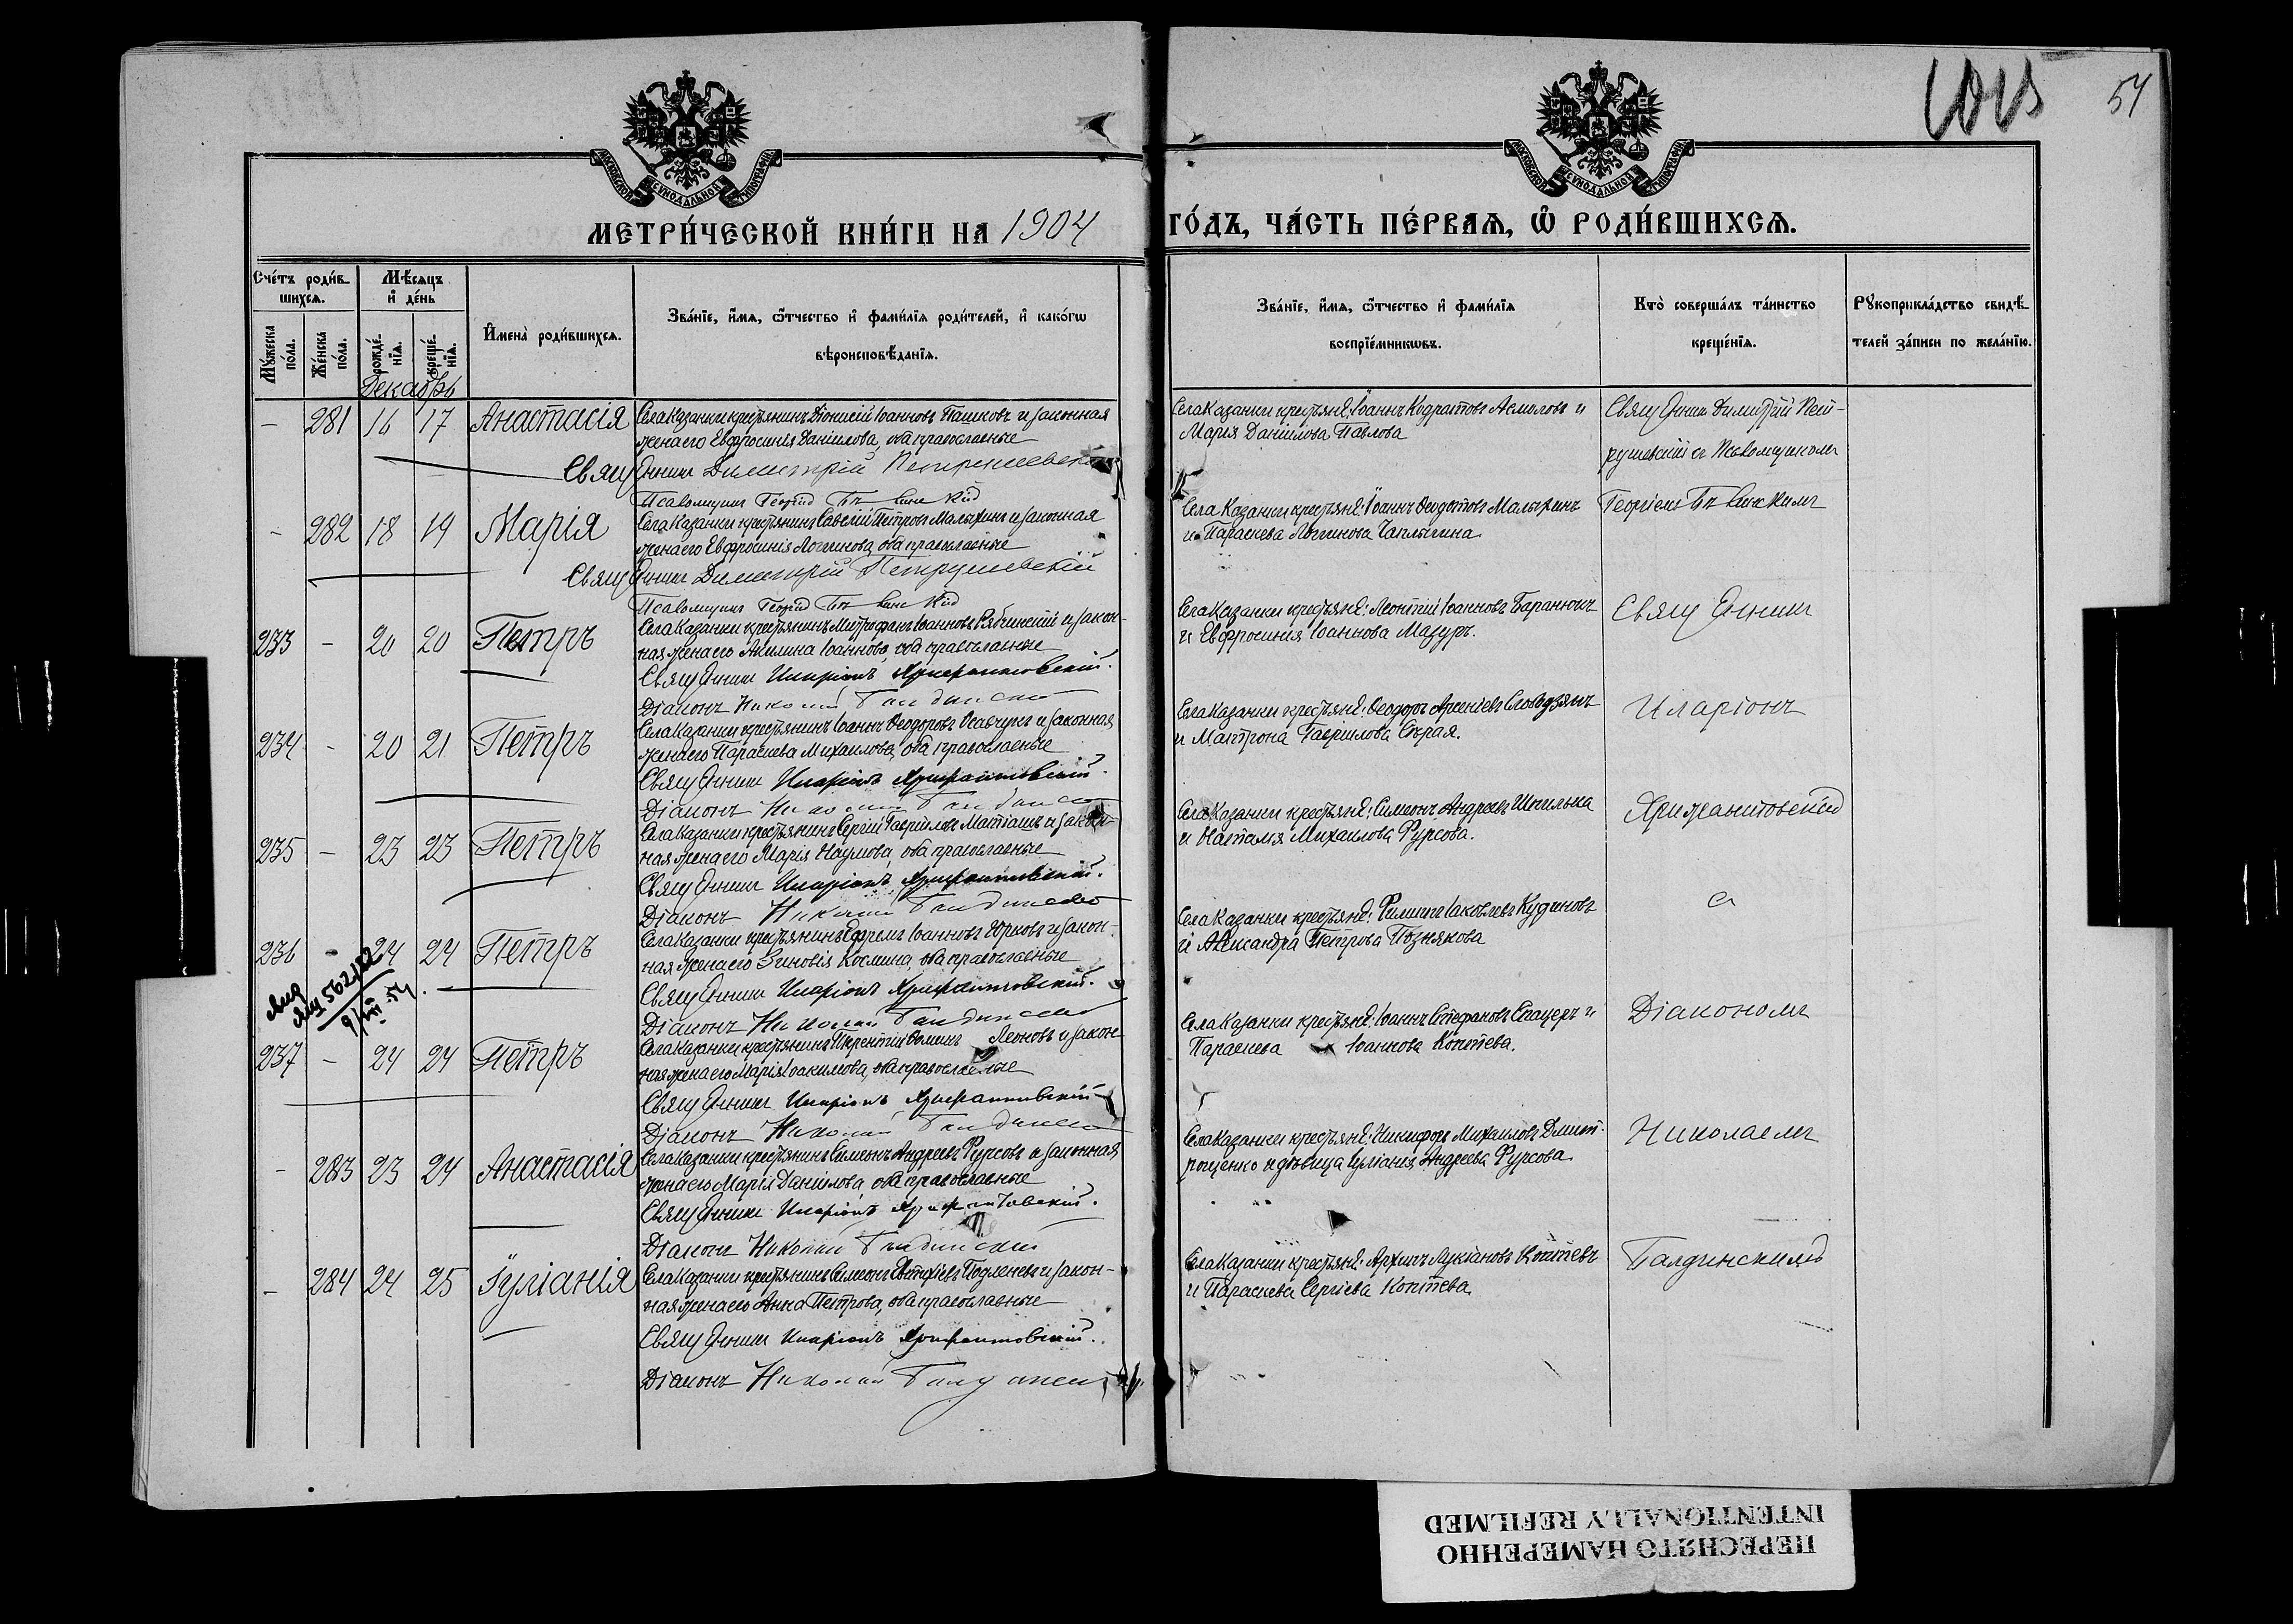 1015
54
МОСКОВСКОЙ СѴНОДАЛЬНОЙ ТИПОГРАФІИ
МОСКОВСКОЙ СѴНОДАЛЬНОЙ ТИПОГРАФІИ
МЕТРИ́ЧЕСКОЙ КНИ́ГИ НА 1904
ГО́ДЪ, ЧА́СТЬ ПЕ́РВАѦ, Ѿ РОДИ́ВШИХСѦ.
Сче́тъ роди́в-
шихсѧ.
Мѣ́сѧцъ
и҆ де́нь
Мꙋ́жеска
по́ла.
Же́нска
по́ла.
рожде́-
нїѧ.
креще́-
нїѧ.
И҆мена̀ роди́вшихсѧ.
Зва́нїе, и҆́мѧ, ѻ҆́тчество и҆ фами́лїѧ роди́телей, и҆ како́гѡ
вѣроисповѣ́данїѧ.
Зва́нїе, и҆́мѧ, ѻ҆́тчество и҆ фами́лїѧ
воспрїе́мникѡвъ.
Кто̀ соверша́лъ та́инство
креще́нїѧ.
Рꙋкоприкла́дство свидѣ́-
телей за́писи по жела́нїю.
Декабрь
– 281 16 17 Анастасія
Села Казанки крестьянинъ Діонисій Іоанновъ Пашковъ и законная
жена его Евфросинія Даніилова, оба православные
Села Казанки крестьяне: Іоаннъ Кодратовъ Асмоловъ и
Марія Даніилова Павлова
Священникъ Димитрій Пет-
рушевскій съ Псаломщикомъ
Священникъ Димитрій Петрушевскій
Псаломщикъ Георгій
– 282 18 19 Марія
Села Казанки крестьянинъ Савелій Петровъ Малыхинъ и законная
жена его Евфросинія Логгинова, оба православные
Села Казанки крестьяне: Іоаннъ Ѳеодотовъ Малыхинъ
и Параскева Логгинова Чаплыгина
Георгіемъ
Священникъ Димитрій Петрушевскій
Псаломщикъ Георгій
233 – 20 20 Петръ
Села Казанки крестьянинъ Митрофанъ Іоанновъ Рябчинскій и закон-
ная жена его Акилина Іоаннова, оба православные
Села Казанки крестьяне: Леонтій Іоанновъ Баранюкъ
и Евфросинія Іоаннова Мазуръ.
Священникъ
Священникъ Иларіонъ Хрисанфовскій.
Діаконъ Николай Галдинскій
234 – 20 21 Петръ
Села Казанки крестьянинъ Іоаннъ Ѳеодоровъ Осавчукъ и законная
жена его Параскева Михаилова, оба православные
Села Казанки крестьяне: Ѳеодоръ Арсеніевъ Слободзянъ
и Матрона Гавриилова Сѣрая.
Иларіонъ
Священникъ Иларіонъ
Діаконъ Николай Галдинскій
235 – 23 23 Петръ
Села Казанки крестьянинъ Сергій Гавріиловъ Матіашъ и закон-
ная жена его Марія Наумова, оба православные
Села Казанки крестьяне: Симеонъ Андреевъ Шпилька
и Наталія Михаилова Фурсова.
Священникъ Иларіонъ
Діаконъ Николай Галдинскій
236 – 24 24 Петръ
Села Казанки крестьянинъ Ефремъ Іоанновъ Юрковъ и закон-
ная жена его Зиновія Космина, оба православные
Села Казанки крестьяне: Филиппъ Іаковлевъ Кудиновъ
и Александра Петрова Познякова
съ
562482
9/VIII 54.
Священникъ Иларіонъ
Діаконъ Николай Галдинскій
237 – 24 24 Петръ
Села Казанки крестьянинъ Терентій Ѳоминъ Леоновъ и закон-
ная жена его Марія Іоакимова, оба православные
Села Казанки крестьяне: Іоаннъ Стефановъ и
Параскева Іоаннова Коптева.
Діакономъ
Священникъ Иларіонъ
Діаконъ Николай Галдинскій
– 283 23 24 Анастасія
Села Казанки крестьянинъ Симеонъ Андреевъ Фурсовъ и законная
жена его Марія Данилова, оба православные
Села Казанки крестьяне: Никифоръ Михаиловъ Дмит-
рощенко и дѣвица Іуліанія Андреева Фурсова.
Николаемъ
Священникъ Иларіонъ
Діаконъ Николай Галдинскій
– 284 24 25 Іуліанія
Села Казанки крестьянинъ Симеонъ Евтихіевъ Подленевъ и закон-
ная жена его Анна Петрова, оба православные
Села Казанки крестьяне: Архипъ Лукіановъ Коптевъ
и Параскева Сергіева Коптева.
Галдинскимъ
Священникъ Иларіонъ
Діаконъ Николай Галдинскій
ПЕРЕСНЯТО НАМЕРЕННО
INTENTIONALLY REFILMED